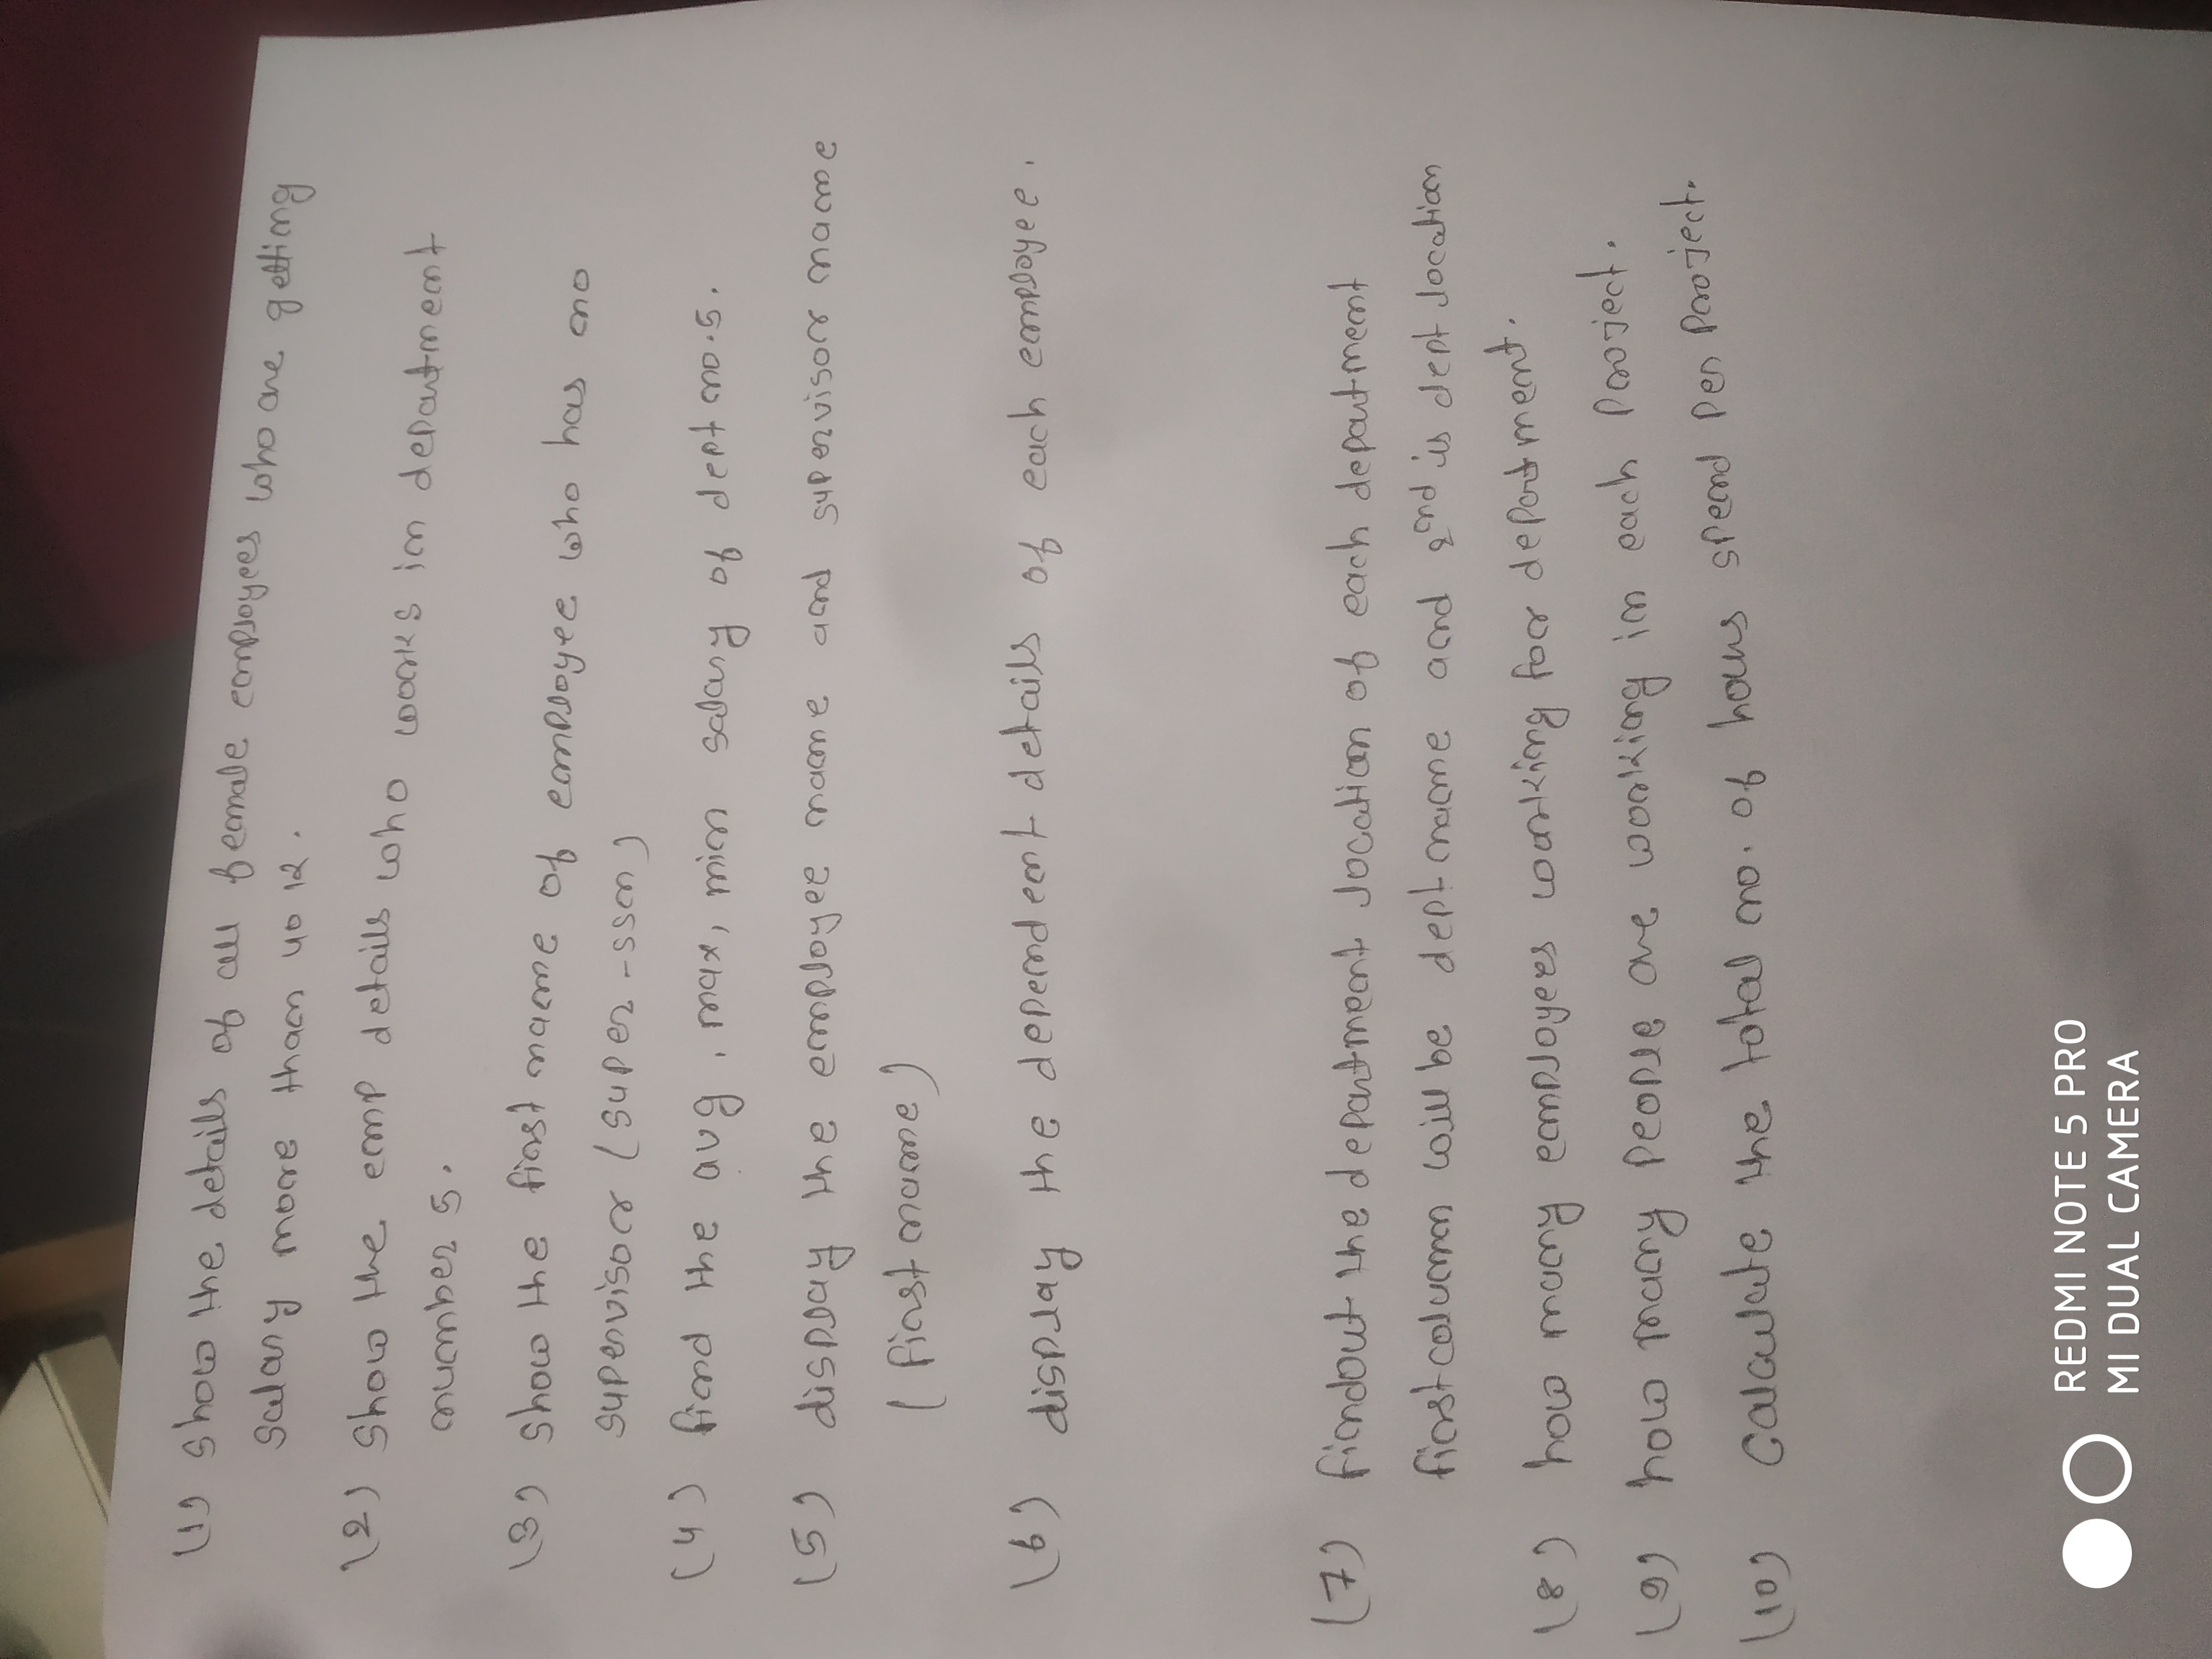 (1) Show the details of all female employees who are getting
salary more than 40 k.
(2) Show the emp details who works in department
number 5.
(3) show the first name of employee who has no
supervisor (super-ssn)
(4) find the avg, max, min salary of dept no.5.
(5) display the employee name and supervisor name
(first name)
(6) display the dependent details of each employee.
(7) findout the department location of each department
first column will be dept name and 2nd is dept location
(8) how many employees working for department.
(9) how many people are working in each project.
(10) Calculate the total no. of hours spend per project.
REDMI NOTE 5 PRO
MI DUAL CAMERA